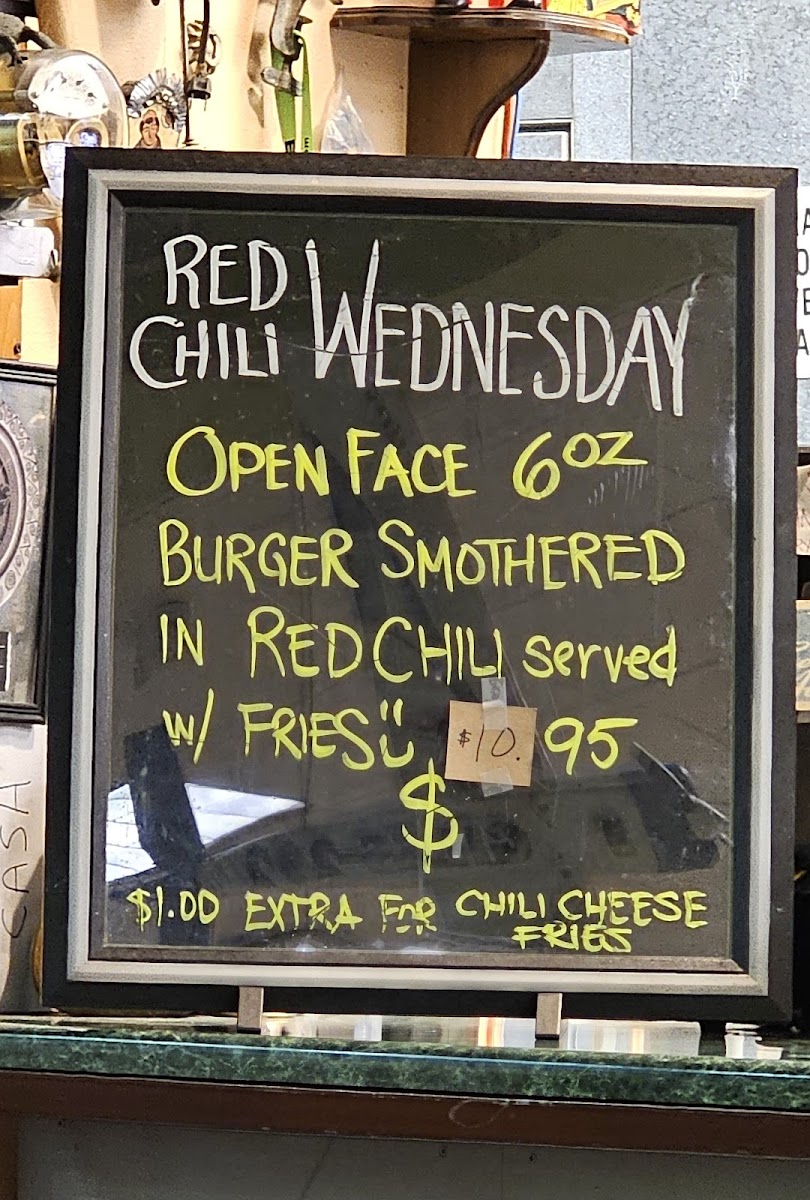 RED
CHILI WEDNESDAY
OPEN FACE 6OZ
BURGER SMOTHERED
IN RED CHILI served
w/ FRIES $10.95
$
$1.00 EXTRA FOR CHILI CHEESE
FRIES
CASA